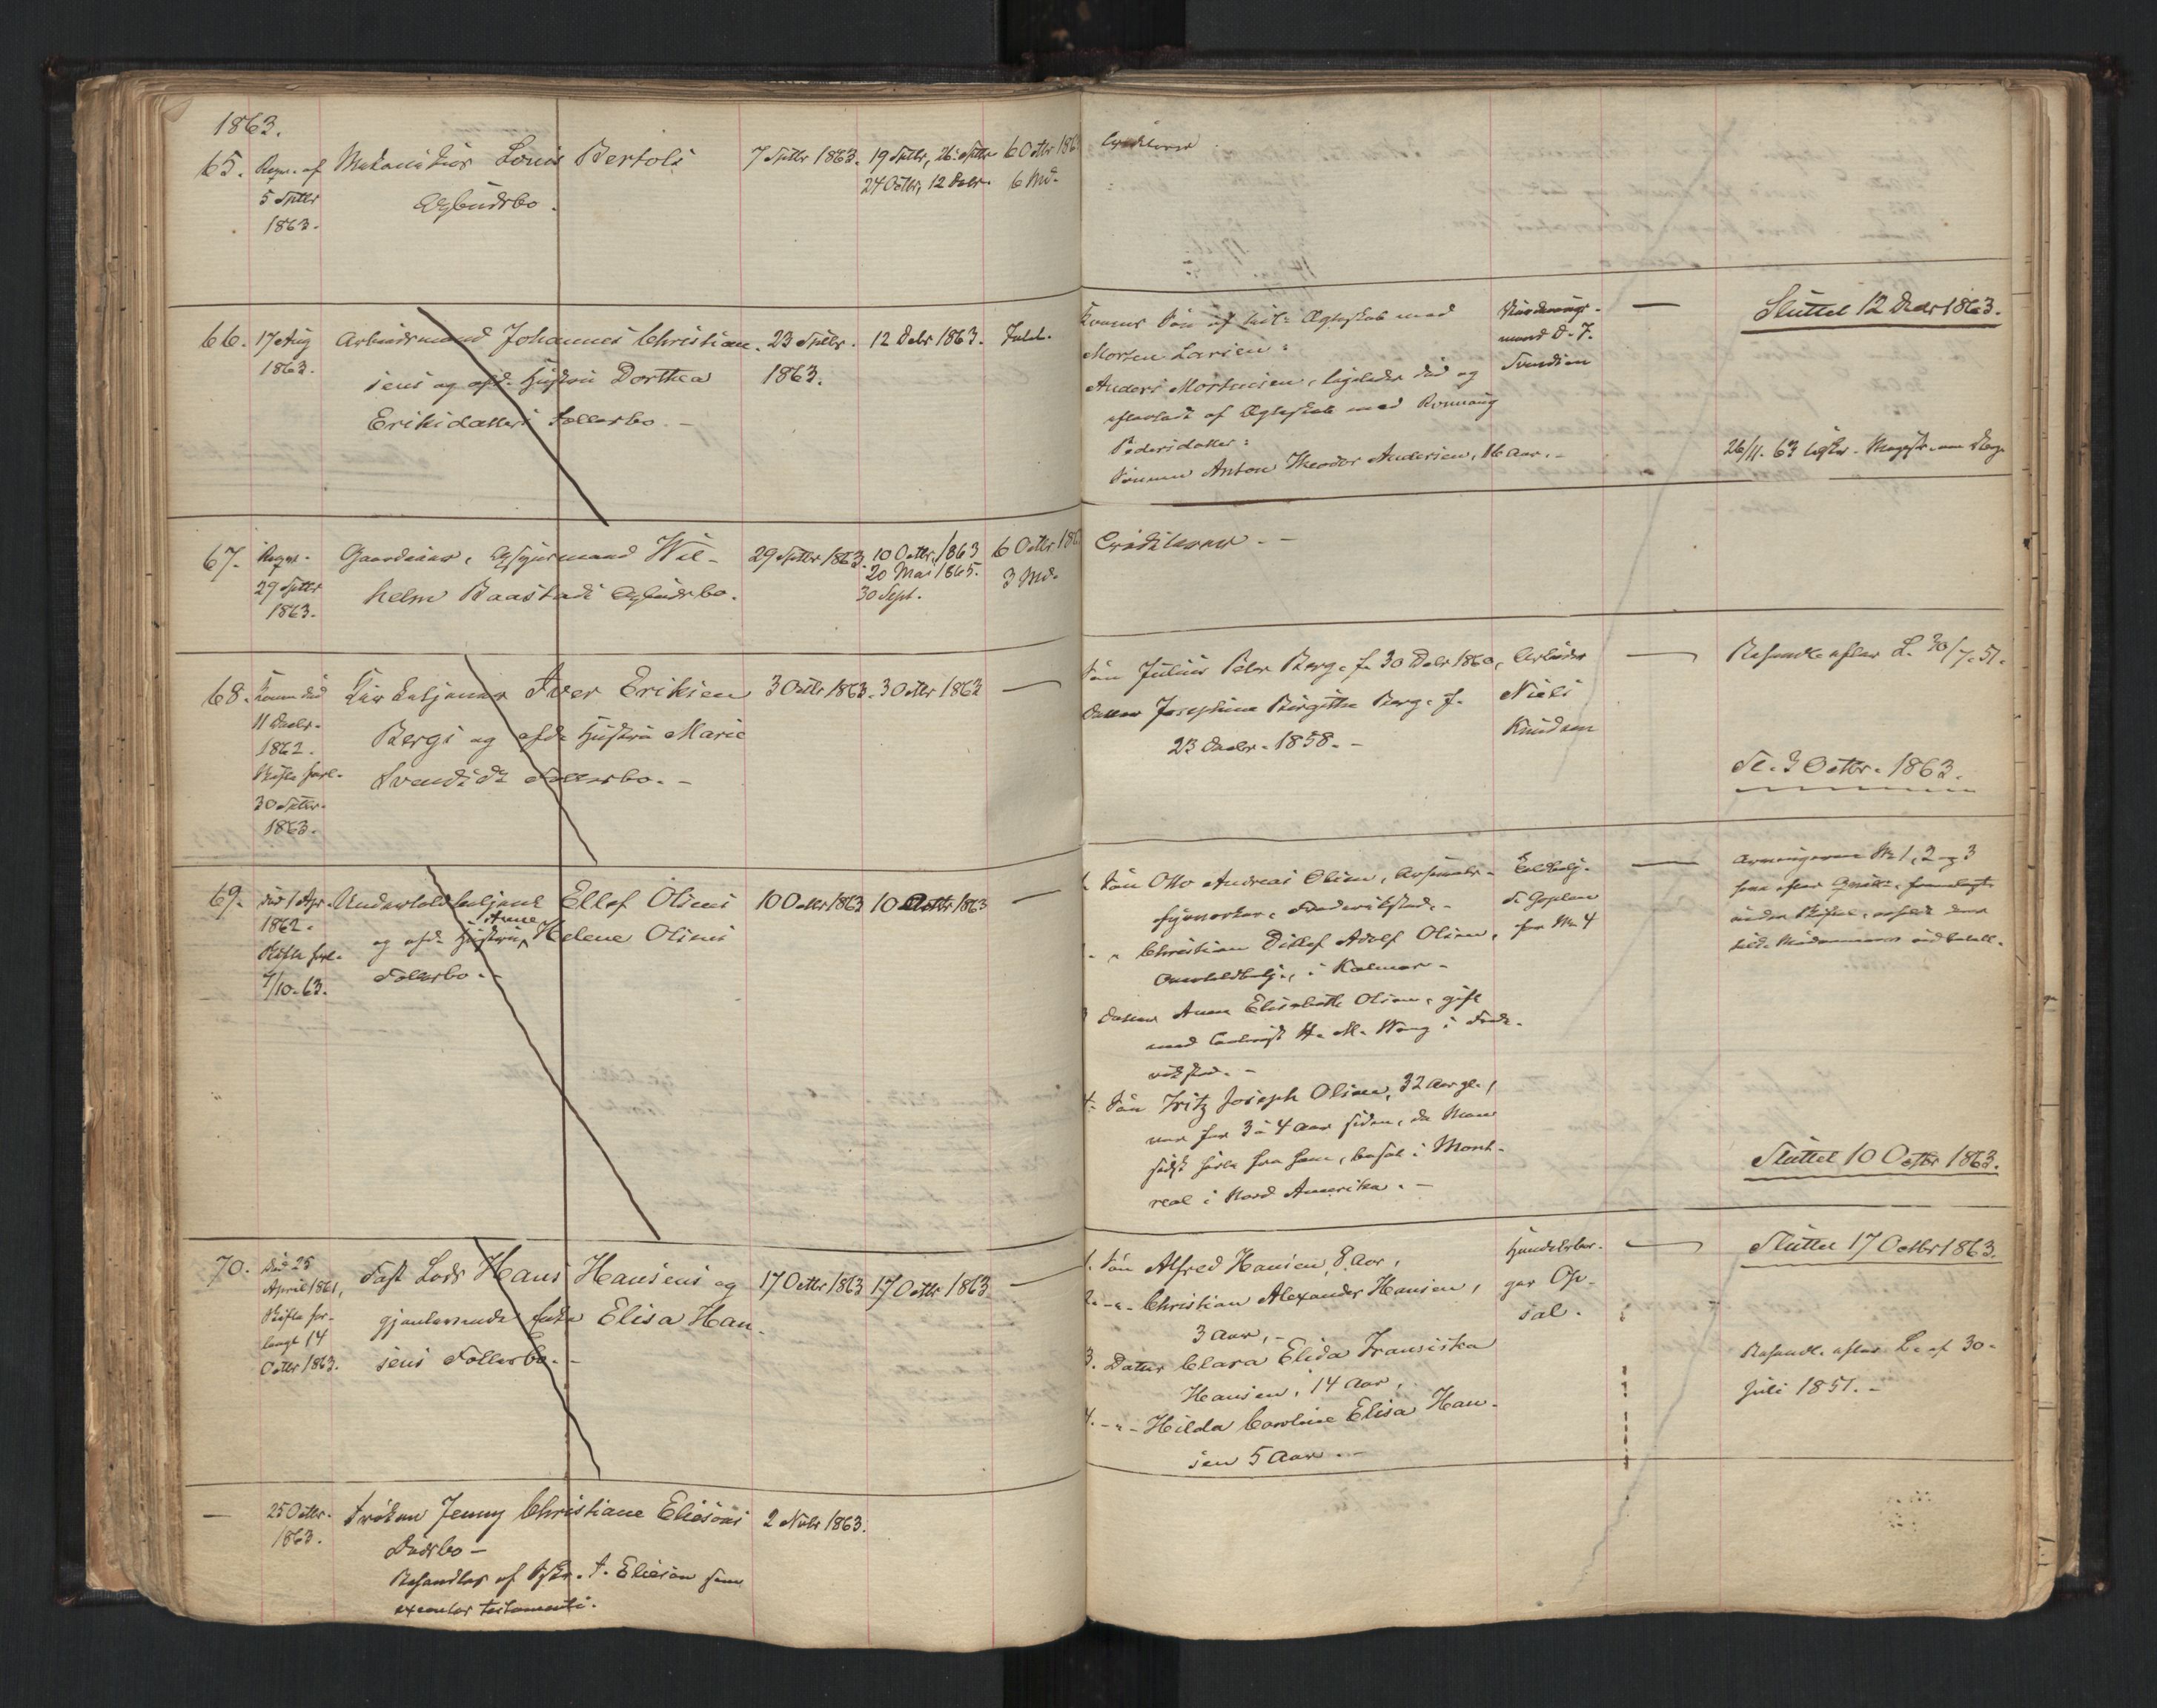 1863.
65. Regn. af Mekanikus Louis Bertols 7 Septbr 1863. 19 Septbr, 26 Septbr 6 Octbr 1863
5 Septbr Opbudsbo. 24 Octbr, 12 Decbr. 6 Md.
1863.
Creditorer
66. 17 Aug Arbeidsmand Johannes Christian- 23 Septbr. 12 Debr 1863. Fuldm.
1863. sens og afd. Hustru Dorthea 1863.
Eriksdatters Fællesbo. -
Konens Søn af Ægteskab med
Morten Larsen:
Anders Mortensen, ligeledes død og
efterladt af Ægteskab med Rønnaug
Pedersdatter:
Sønnen Anton Theodor Andersen, 16 Aar. -
mand
Svendsen
Sluttet 12 Decbr 1863.
26/11. 63
67. Regn. Gaardeier, Opsynsmand Wil- 29 Septbr 1863. 10 Octbr. 1863 6 Octbr 186
29 Septbr helm Baastads Opbudsbo. 20 Mai 1865. 3 Md.
1863. 30 Sept.
Creditorer. -
68. Konen død Iver Eriksen 3 Octbr 1863. 3 Octbr 1863 —
11 Decbr. Bergs og afd. Hustru Marie
1862. Svendsd. Fællesbo. -
Skifte forl.
30 Septbr.
1863.
Søn Julius Peder Berg, f. 30 Debr 1860, Arbeider
Datter Josephine Birgitte Berg, f. Niels
23 Decbr. 1858. - Knudsen
Behandl. efter L. 30/7. 51.
Sl. 3 Octbr. 1863.
69. død 1 Apr. Undertoldbetjent Ellef Olsens 10 Octbr 1863 10 Octbr 1863 —
1862. og afd. Hustru Anne Helene Olsens
Skifte forl. Fællesbo. -
7/10. 63.
1. Søn Otto Andreas Olsen, Frederikstad. -
" Christian Ditlef Adolf Olsen,
i Kalmar -
3 Datter Anne Elisabeth Olsen, gift
med H. M. Wang i Frede-
rikstad. -
4. Søn Fritz Joseph Olsen, 32 Aar gl.,
var for 3 à 4 Aar siden, da Man
sidst hørte fra ham, bosat i Mont-
real i Nord Amerika. -
Toldbetj.
for No 4
Arvingerne No 1, 2 og 3
Sluttet 10 Octbr 1863.
70. Død 25 Fast Lods Hans Hansens og 17 Octbr 1863 17 Octbr 1863 —
April 1861, gjenlevende Enke Elisa Han-
Skifte for- sens Fællesbo. -
langt 14
Octbr 1863.
1. Søn Alfred Hansen, 8 Aar,
2. - " - Christian Alexander Hansen,
3 Aar, -
3. Datter Clara Elida Fransiska
Hansen, 14 Aar,
4. - " - Hilda Caroline Elisa Han-
sen 5 Aar. -
Handelsbor-
ger Op-
sal.
Sluttet 17 Octbr 1863.
Behandl. efter L. af 30-
Juli 1851. -
— 25 Octbr. Frøken Jenny Christiane Eliesons 2 Novbr 1863.
1863. Dødsbo -
Behandles af T. Elieson som
executor testamenti.